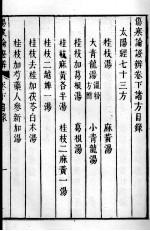 傷寒論辯卷下諸方目錄
太陽經七十三方
桂枝湯
麻黃湯
大青龍湯
小青龍湯
桂枝加葛根湯
葛根湯
桂枝麻黃各半湯
桂枝二麻黃一湯
桂枝二越婢一湯
桂枝去桂加茯苓白朮湯
桂枝加芍藥人參新加湯